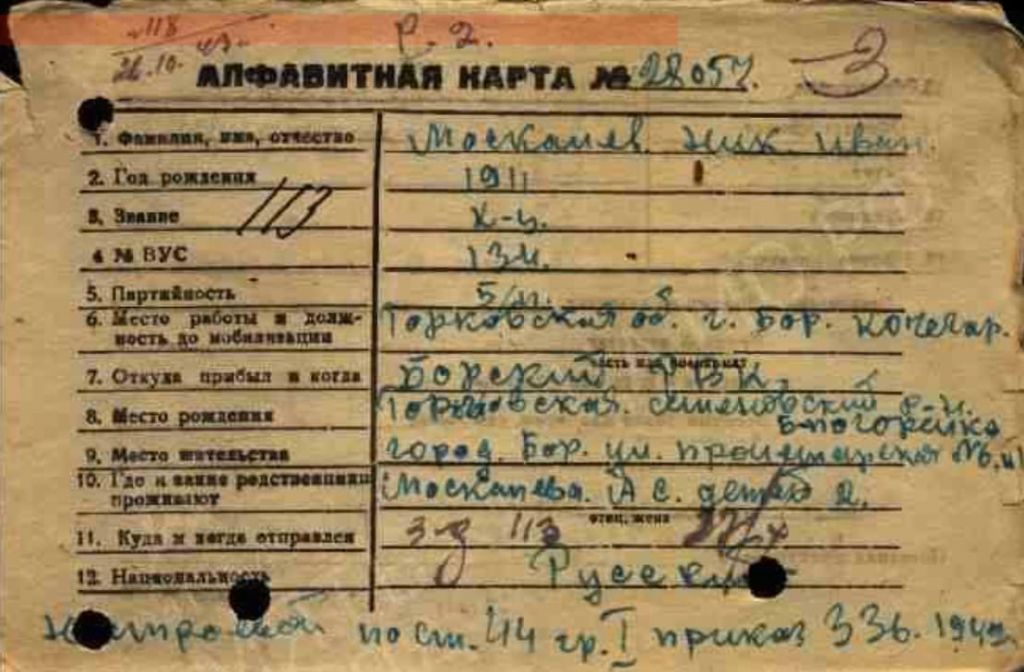 №118
26.10. 43г. Р-2.
АЛФАВИТНАЯ КАРТА № 28057. 3
1. Фамилия, имя, отчество Москалев Ник Иван.
2. Год рождения 1911
3. Звание 113 к-ц.
4 № ВУС 134.
5. Партийность б/п.
6. Место работы и долж- Горковская об. г. Бор. кочегар.
ность до мобилизации
часть или военкомат
7. Откуда прибыл и когда Борский РВК.
8. Место рождения Горьковская. Семеновский р-н.
9. Место жительства город. Бор. ул. пролетарская №6,
10. Где и какие родственники Москалева. А С. детей 2.
проживают
отец, жена
11. Куда и когда отправлен 113
12. Национальность Русский
по ст. 44 гр. I приказ 336. 1942